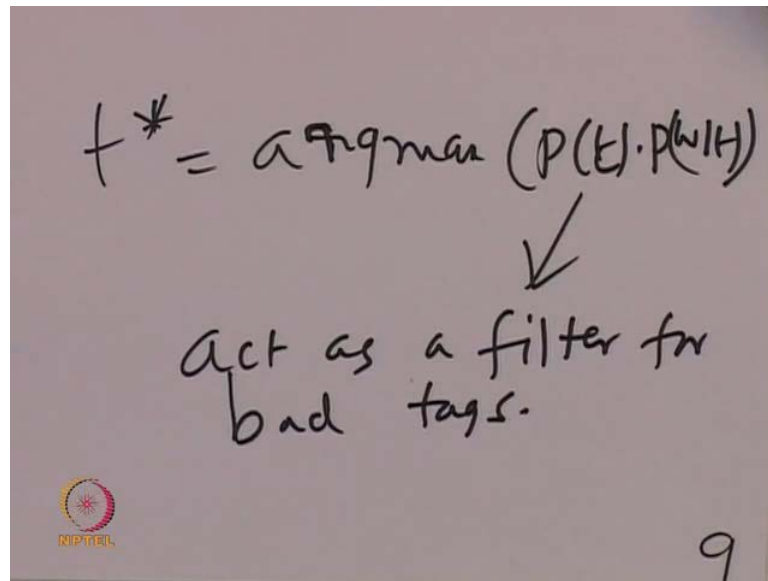 t* = argmax (P(t).P(w|t)
act as a filter for
bad tags.
NPTEL
9